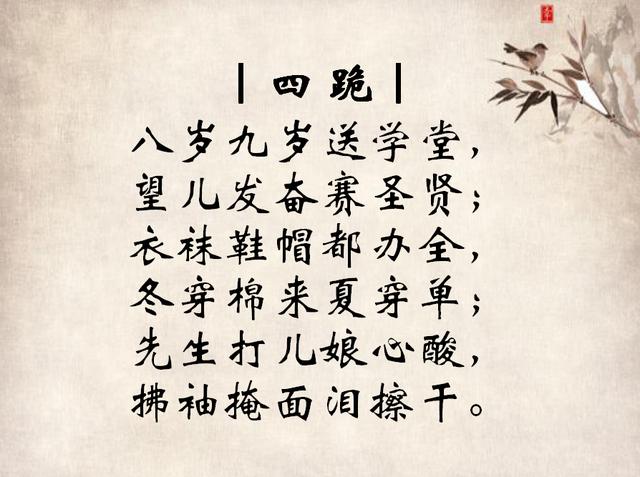 | 四跪 |
八岁九岁送学堂，
望儿发奋赛圣贤；
衣袜鞋帽都办全，
冬穿棉来夏穿单；
先生打儿娘心酸，
拂袖掩面泪擦干。